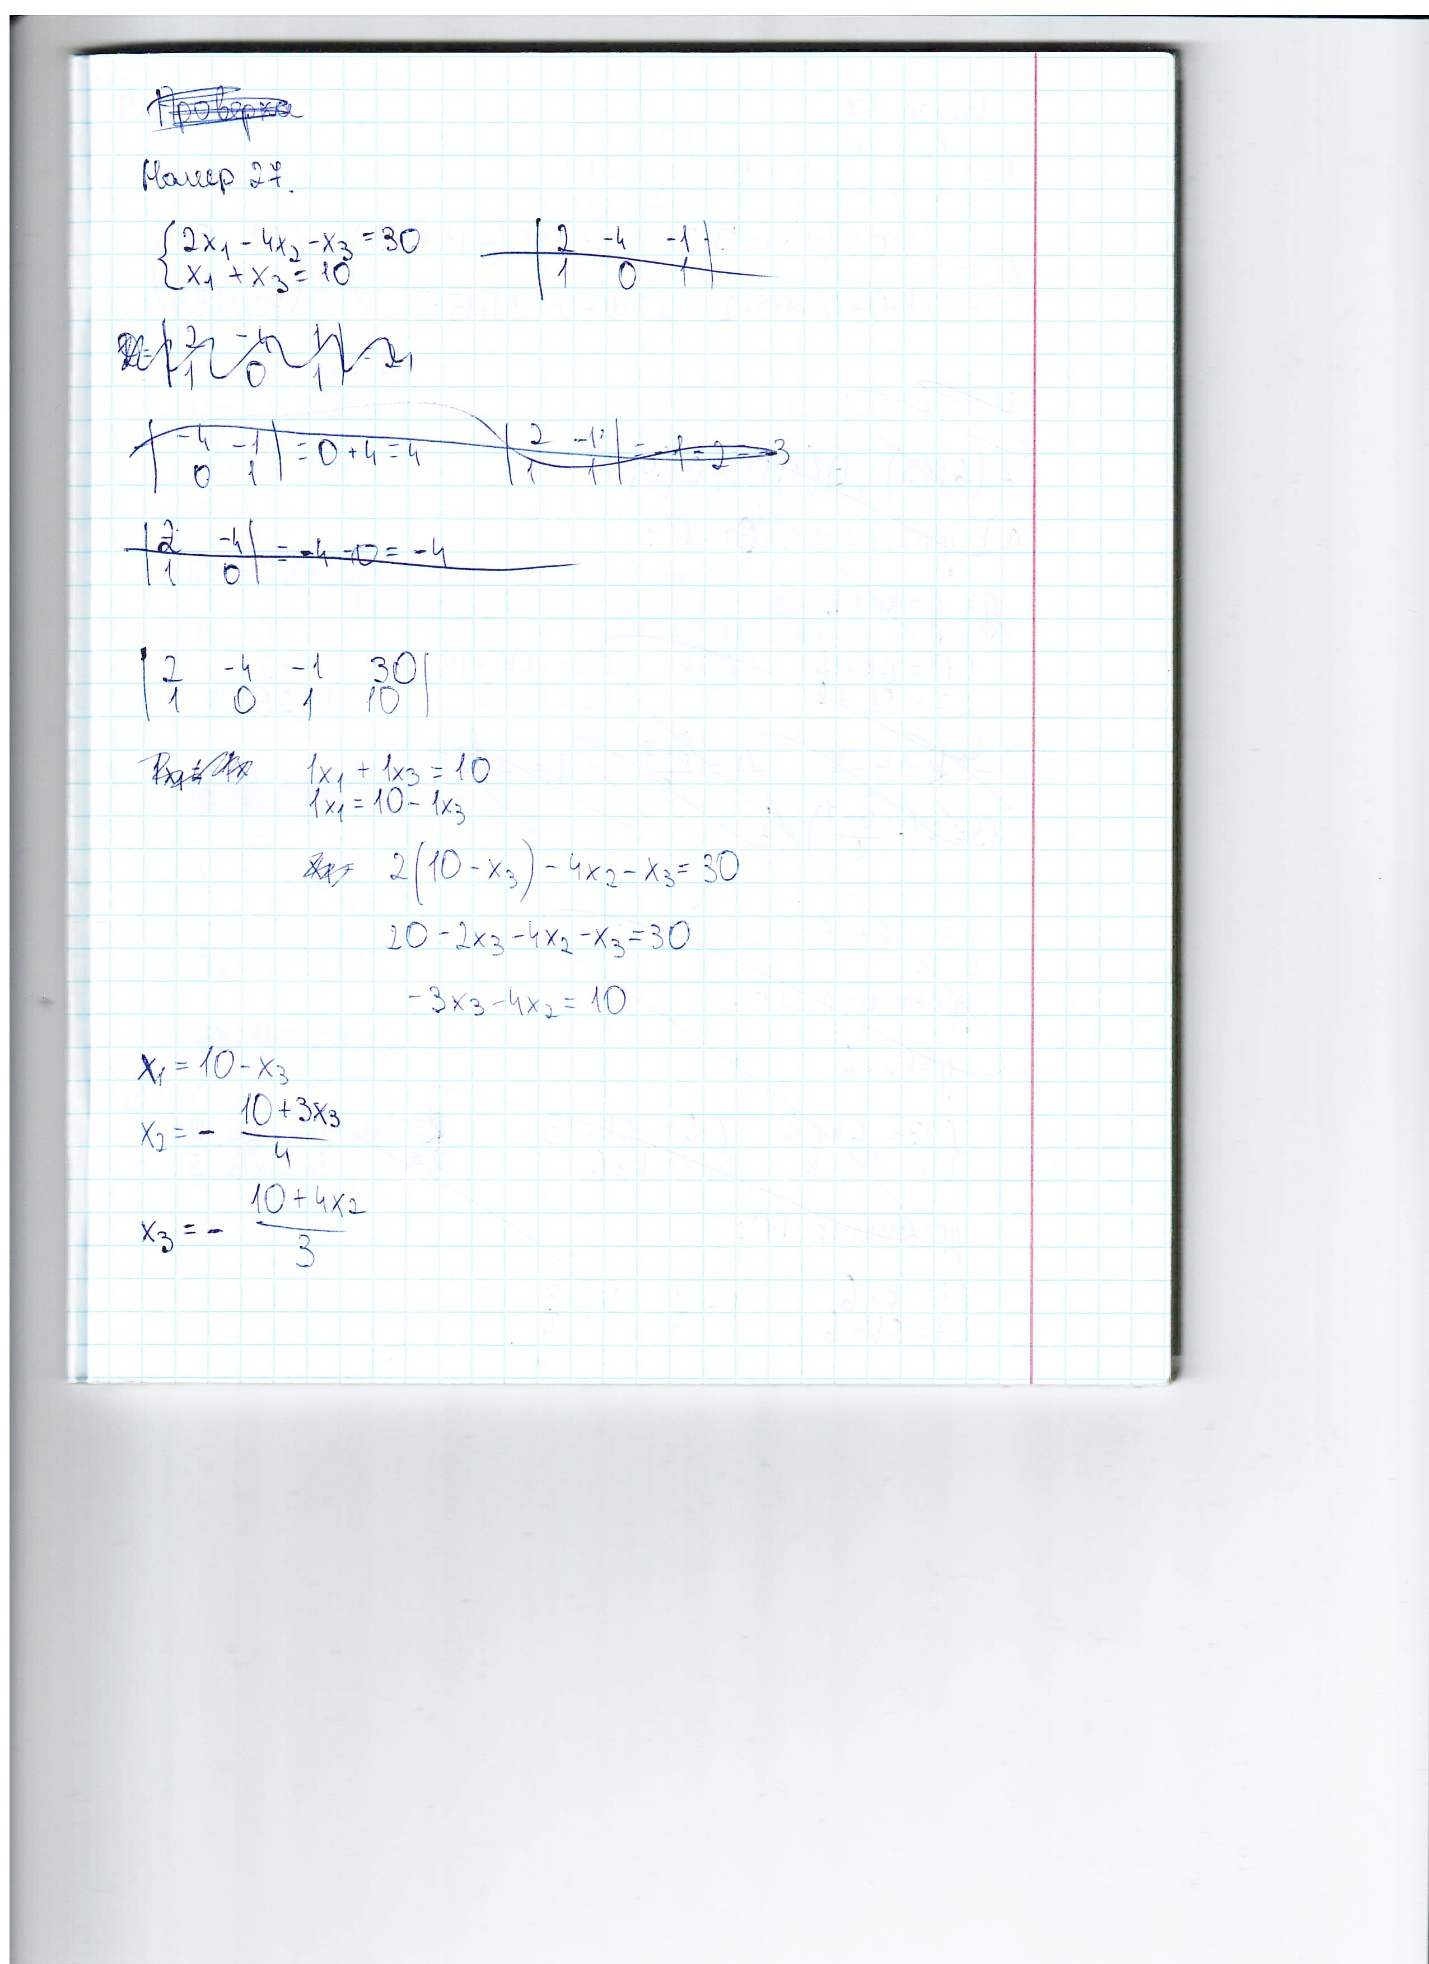 Проверка
Номер 27.
{2x₁ - 4x₂ - x₃ = 30 |2 -4 -1|
{x₁ + x₃ = 10 |1 0 1|
|2 -4 1|
|1 0 1|
|-4 -1| = 0 + 4 = 4 |2 -1| = -1 - 2 = -3
|0 1| |1 1|
|2 -4| = -4 - 0 = -4
|1 0|
|2 -4 -1 30|
|1 0 1 10|
1x₁ + 1x₃ = 10
1x₁ = 10 - 1x₃
2(10 - x₃) - 4x₂ - x₃ = 30
20 - 2x₃ - 4x₂ - x₃ = 30
-3x₃ - 4x₂ = 10
x₁ = 10 - x₃
x₂ = - (10 + 3x₃)/4
x₃ = - (10 + 4x₂)/3